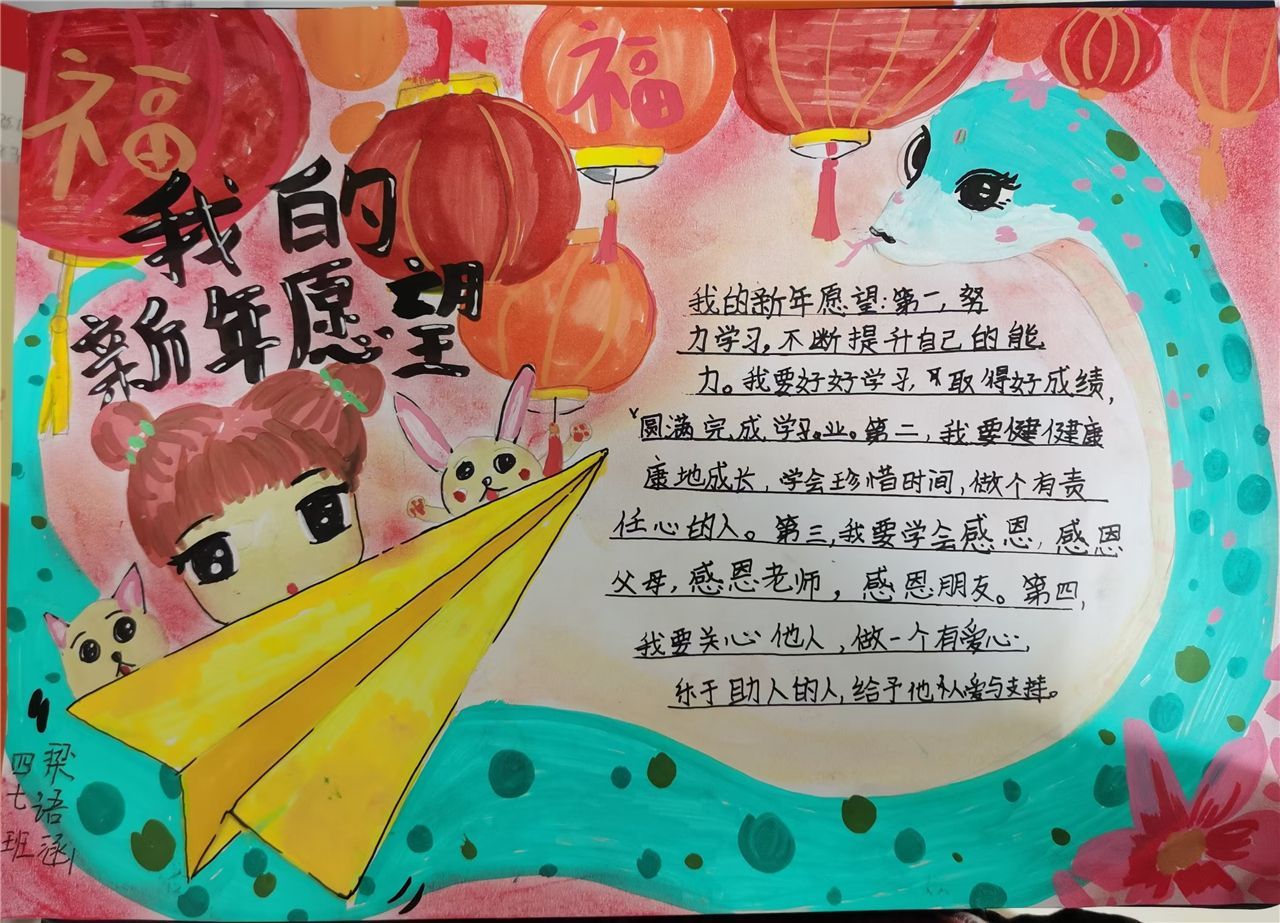 福
福
我的
新年愿望
我的新年愿望：第一，努
力学习，不断提升自己的能
力。我要好好学习，取得好成绩，
圆满完成学习。业。第二，我要健健康
康地成长，学会珍惜时间，做个有责
任心的人。第三，我要学会感恩，感恩
父母，感恩老师，感恩朋友。第四，
我要关心他人，做一个有爱心，
乐于助人的人，给予他人爱与支持。
四七班
梁语涵